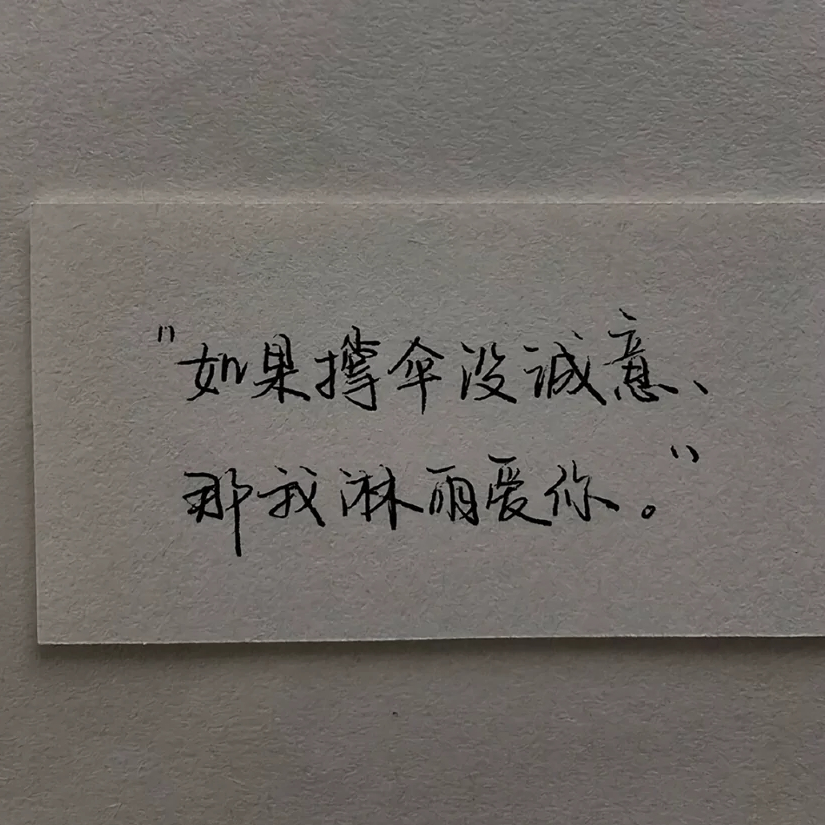 "如果撑伞没诚意、
那我淋雨爱你。"